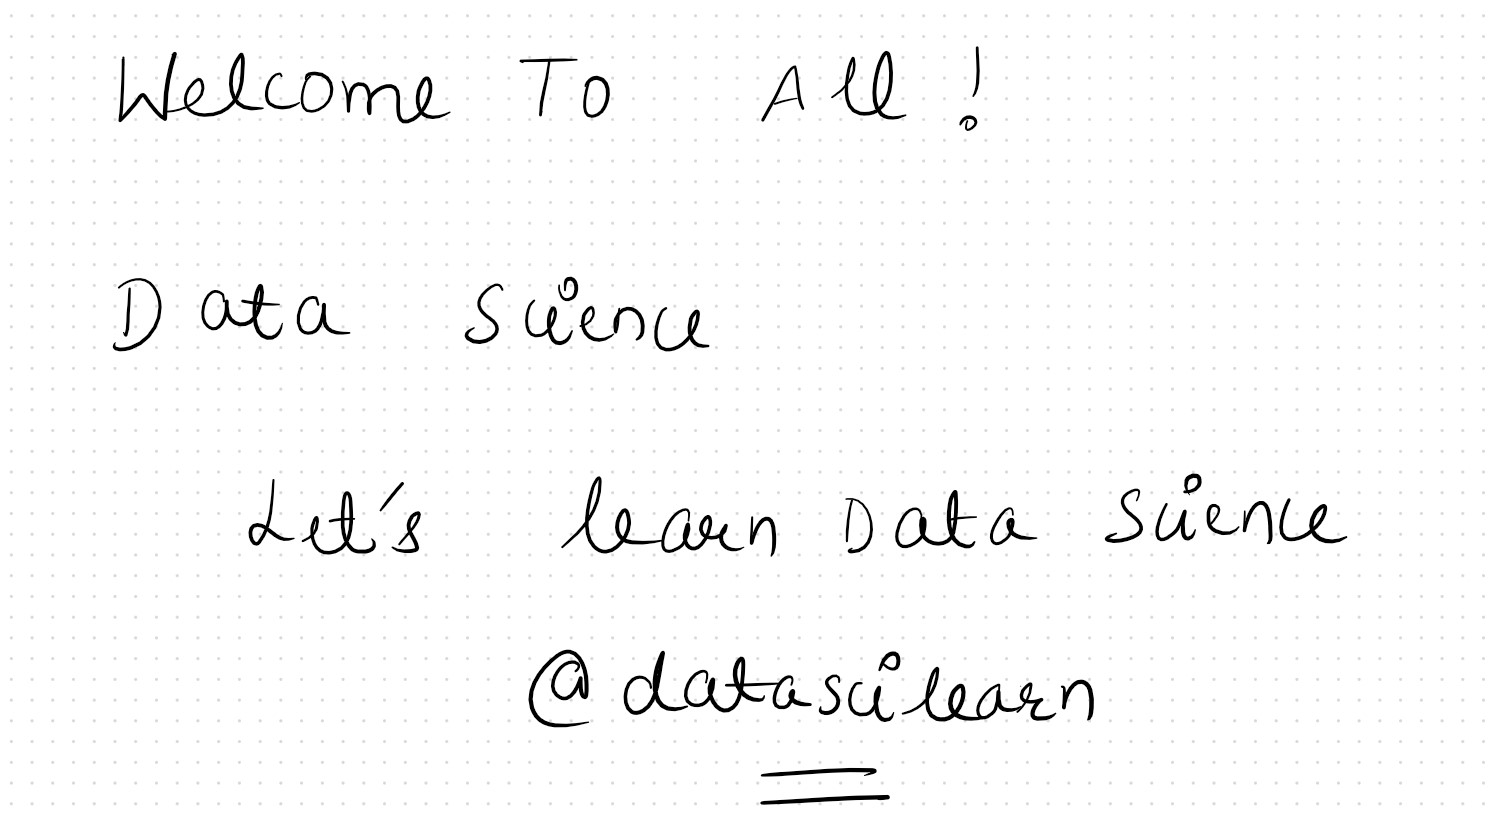 Welcome To All!
Data Science
Let's learn Data Science
@datascilearn